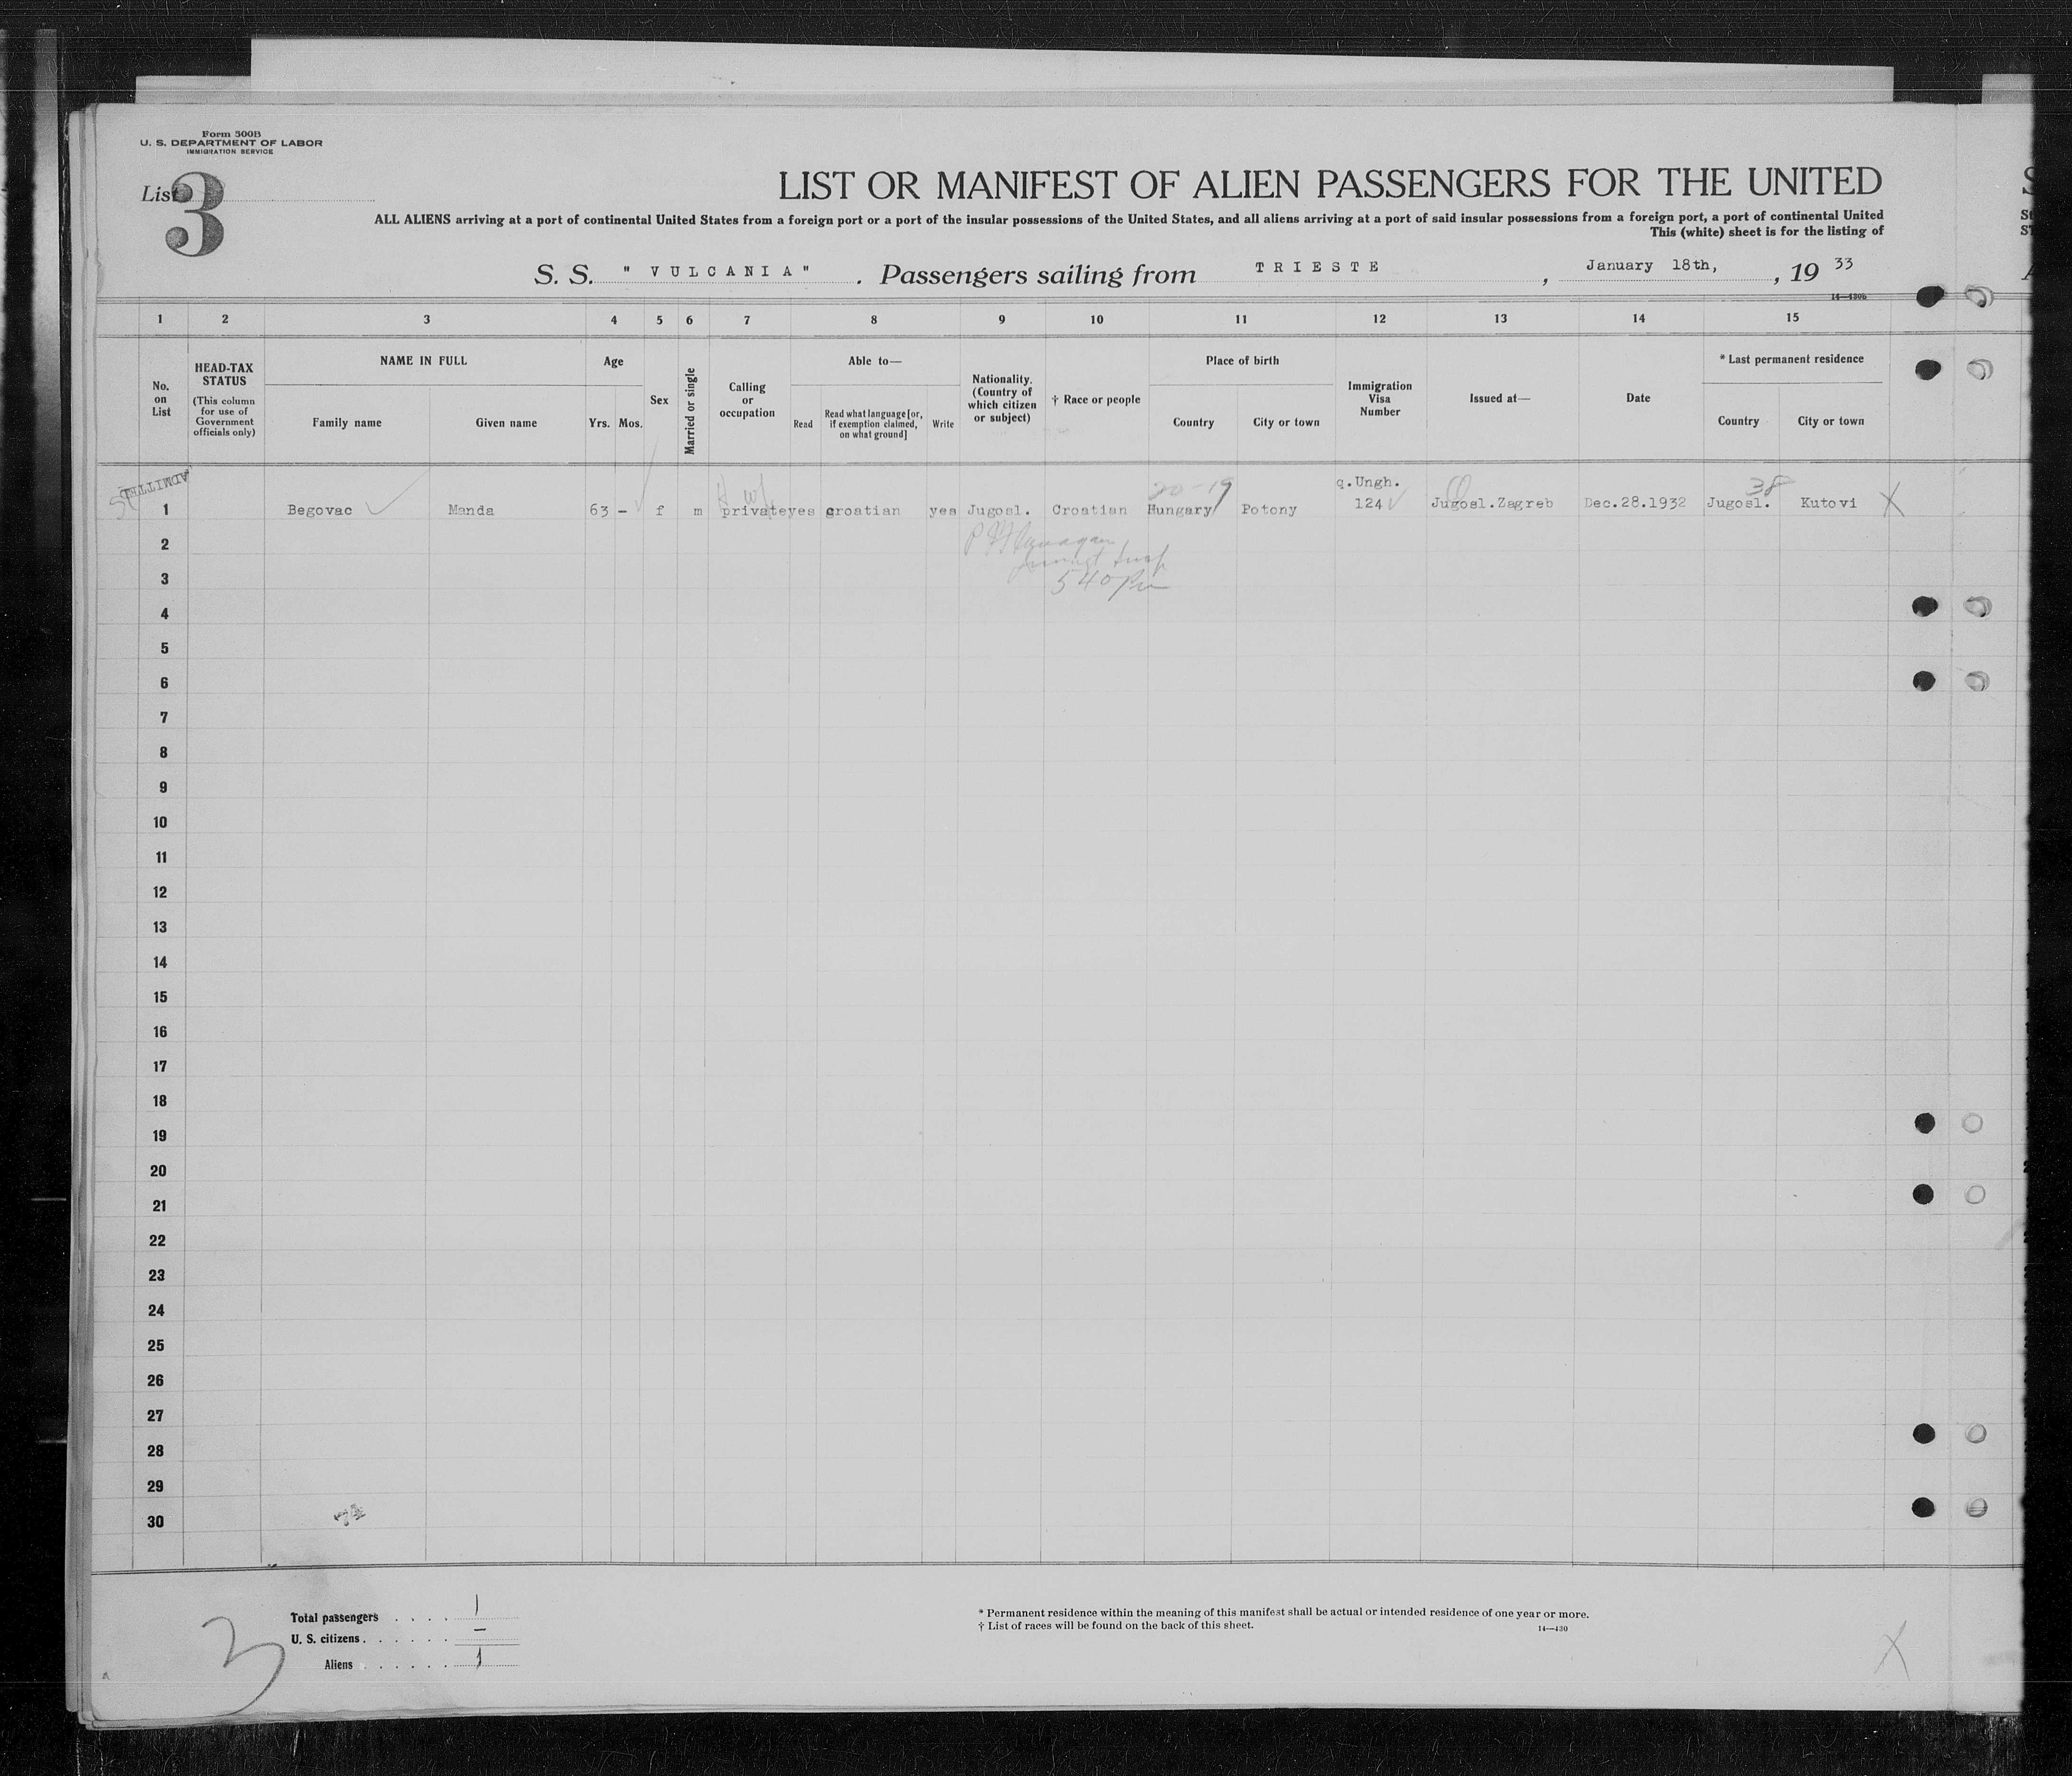 Form 500B
U. S. DEPARTMENT OF LABOR
IMMIGRATION SERVICE
List 3
LIST OR MANIFEST OF ALIEN PASSENGERS FOR THE UNITED
ALL ALIENS arriving at a port of continental United States from a foreign port or a port of the insular possessions of the United States, and all aliens arriving at a port of said insular possessions from a foreign port, a port of continental United
This (white) sheet is for the listing of
S. S. " VULCANIA ". Passengers sailing from TRIESTE, January 18th, , 19 33
14—430b
1 2 3 4 5 6 7 8 9 10 11 12 13 14 15
No. on List
HEAD-TAX STATUS (This column for use of Government officials only)
NAME IN FULL
Family name Given name
Age
Yrs. Mos.
Sex
Married or single
Calling or occupation
Able to—
Read Read what language [or, if exemption claimed, on what ground] Write
Nationality. (Country of which citizen or subject)
† Race or people
Place of birth
Country City or town
Immigration Visa Number
Issued at—
Date
* Last permanent residence
Country City or town
ADMITTED
20-19 q.Ungh. 38
1 Begovac Manda 63 - f m private yes croatian yes Jugosl. Croatian Hungary Potony 124 Jugosl.Zagreb Dec.28.1932 Jugosl. Kutovi X
2
3 540 Pm
4
5
6
7
8
9
10
11
12
13
14
15
16
17
18
19
20
21
22
23
24
25
26
27
28
29
30
Total passengers . . . . 1
U. S. citizens . . . . . . -
Aliens . . . . . . 1
3
* Permanent residence within the meaning of this manifest shall be actual or intended residence of one year or more.
† List of races will be found on the back of this sheet.
14—430
X